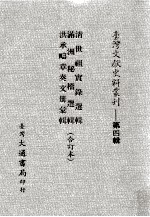 臺灣文獻史料叢刊——第四輯
清世祖實錄選輯
滿洲秘檔選輯
洪承疇章奏文册彙輯
(合訂本)
臺灣大通書局印行